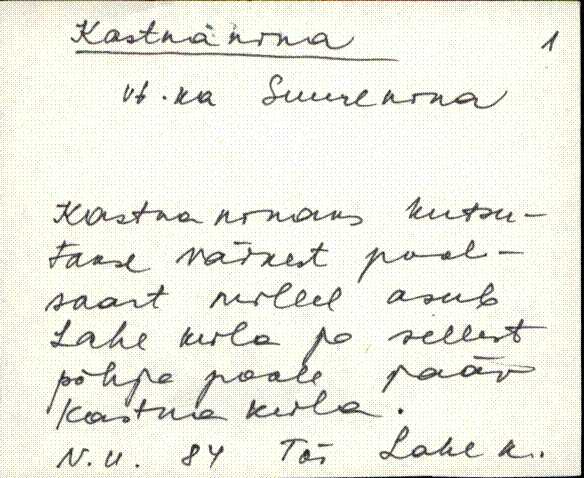 Kastna nina 1
vt. ka Suurenina
Kastna ninaks kutsu-
takse väikest pool-
saart millel asub
Lahe küla ja sellest
põhja poole jääv
Kastna küla.
N.U. 84 Tõs Lahe k.